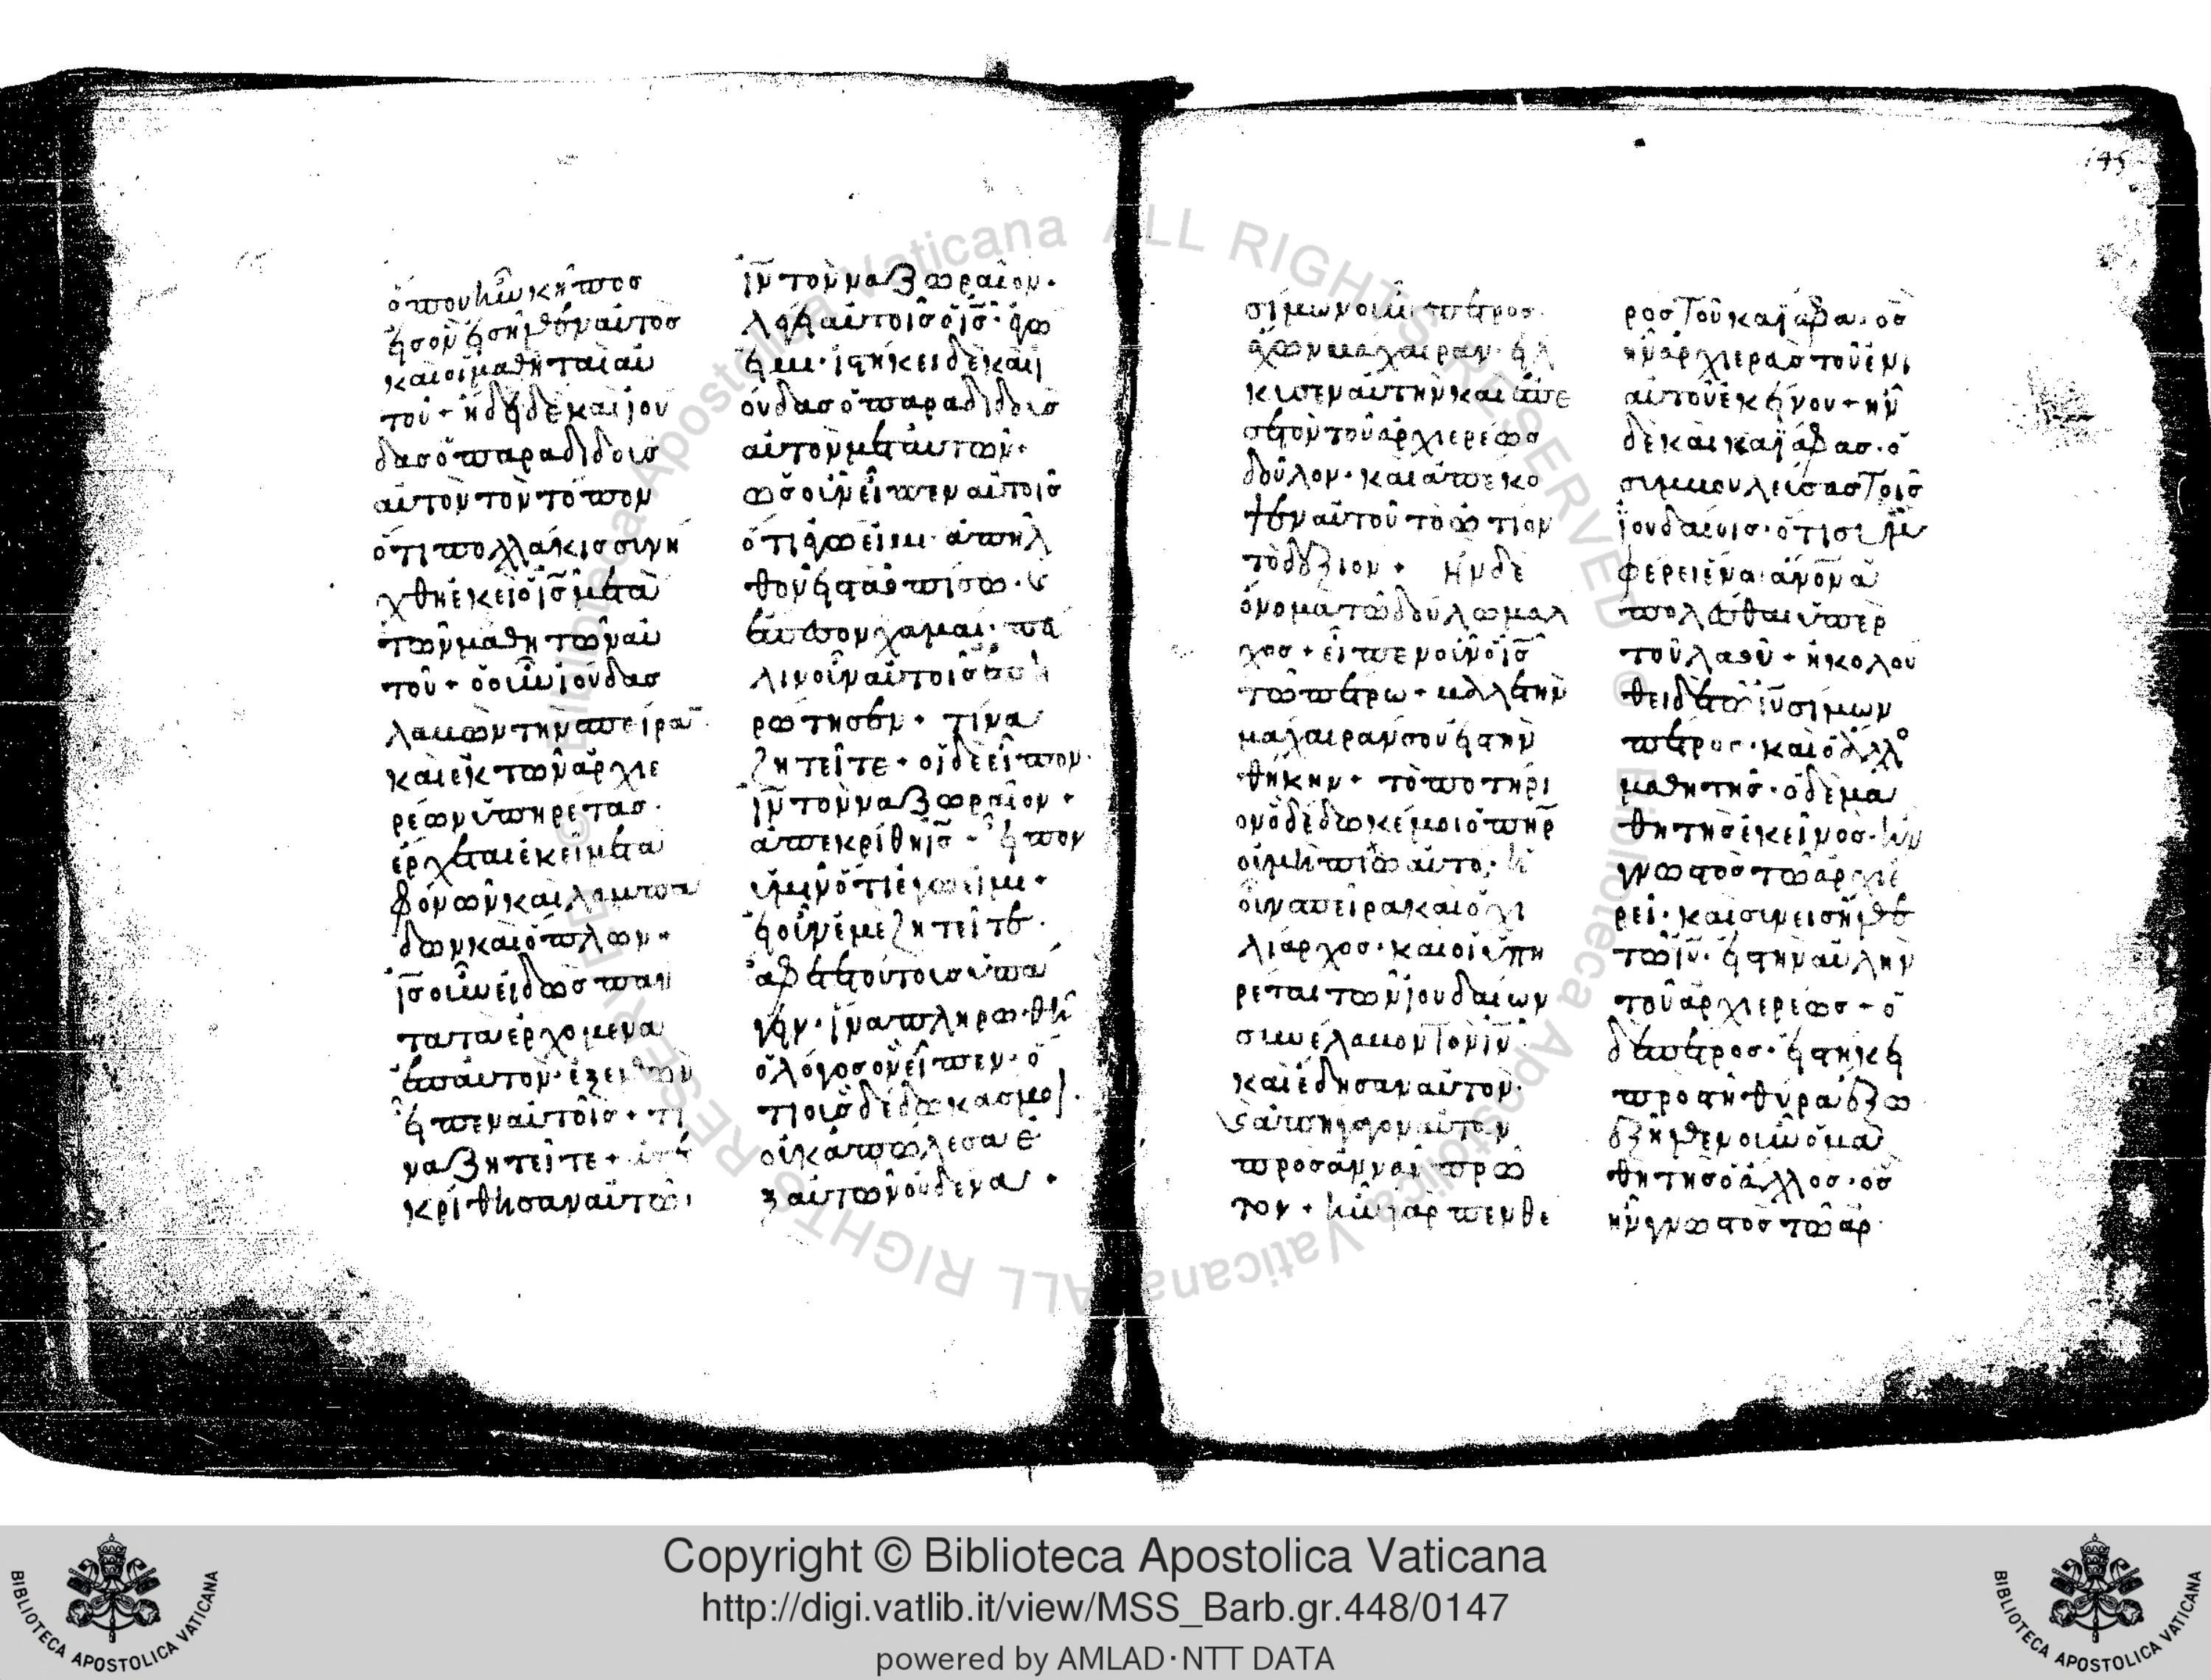 ὅπου ἦν κῆπος
εἰς ὃν εἰσῆλθεν αὐτὸς
καὶ οἱ μαθηταὶ αὐ
τοῦ + ἤδει δὲ καὶ ἰου
δας ὁ παραδιδοὺς
αὐτὸν τὸν τόπον
ὅτι πολλάκις συνή
χθη ἐκεῖ ὁ ις μετὰ
τῶν μαθητῶν αὐ
τοῦ + ὁ οὖν ἰούδας
λαβὼν τὴν σπείραν
καὶ ἐκ τῶν ἀρχιε
ρέων ὑπηρέτας ·
ἔρχεται ἐκεῖ μετὰ
φανῶν καὶ λαμπά
δων καὶ ὅπλων +
ις οὖν εἰδὼς πάν
τα τὰ ἐρχόμενα
ἐπ αὐτὸν · ἐξελθὼν
εἶπεν αὐτοῖς + τί
να ζητεῖτε + ἀπε
κρίθησαν αὐτῶ
ιν τὸν ναζωραῖον ·
λέγει αὐτοῖς ὁ ις · ἐγώ
εἰμι · ἱστήκει δὲ καὶ ἰ
ούδας ὁ παραδιδοὺς
αὐτὸν μετ αὐτῶν +
ὡς οὖν εἶπεν αὐτοῖς
ὅτι ἐγώ εἰμι · ἀπῆλ
θον εἰς τὰ ὀπίσω · καὶ
ἔπεσον χαμαί · πά
λιν οὖν αὐτοὺς ἐπη
ρώτησεν + τίνα
ζητεῖτε + οἱ δὲ εἶπον ·
ιν τὸν ναζωραῖον +
ἀπεκρίθη ις + εἶπον
ὑμῖν ὅτι ἐγώ εἰμι +
εἰ οὖν ἐμὲ ζητεῖτε ·
ἄφετε τούτους ὑπά
γειν · ἵνα πληρωθῆ
ὁ λόγος ὃν εἶπεν · ὅ
τι οὓς δέδωκάς μοι ·
οὐκ ἀπώλεσα ἐ
ξ αὐτῶν οὐδένα +
145
σίμων οὖν πέτρος
ἔχων μάχαιραν · εἵλ
κυσεν αὐτὴν καὶ ἔπε
σε τὸν τοῦ ἀρχιερέως
δοῦλον · καὶ ἀπέκο
ψεν αὐτοῦ τὸ ὠτίον
τὸ δεξιόν + ἦν δὲ
ὄνομα τῶ δούλω μάλ
χος + εἶπεν οὖν ὁ ις
τῶ πέτρω + βάλε τὴν
μάχαιράν σου εἰς τὴν
θήκην + τὸ ποτήρι
ον ὃ δέδωκέ μοι ὁ πηρ
οὐ μὴ πίω αὐτό · ἡ
οὖν σπεῖρα καὶ ὁ χι
λίαρχος · καὶ οἱ ὑπη
ρέται τῶν ἰουδαίων
συνέλαβον τὸν ιν ·
καὶ ἔδησαν αὐτὸν ·
καὶ ἀπήγαγον αὐτὸν
πρὸς ἄνναν πρῶ
τον + ἦν γὰρ πενθε
ρὸς τοῦ καϊάφα · ὃς
ἦν ἀρχιερεὺς τοῦ ἐνι
αυτοῦ ἐκείνου + ἦν
δὲ καὶ καϊάφας · ὁ
συμβουλεύσας τοῖς
ἰουδαίοις · ὅτι συμ
φέρει ἕνα ανον ἀ
πολέσθαι ὑπὲρ
τοῦ λαοῦ + ἠκολού
θει δὲ τῶ ιυ σίμων
πέτρος · καὶ ὁ ἄλλος
μαθητής · ὁ δὲ μα
θητὴς ἐκεῖνος · ἦν
γνωστὸς τῶ ἀρχιε
ρεῖ · καὶ συνεισῆλθε
τῶ ιυ · εἰς τὴν αὐλὴν
τοῦ ἀρχιερέως + ὁ
δὲ πέτρος · εἱστήκει
πρὸς τῆ θύρα ἔξω
ἐξῆλθεν οὖν ὁ μα
θητὴς ὁ ἄλλος · ὃς
ἦν γνωστὸς τῶ ἀρ
Copyright © Biblioteca Apostolica Vaticana
http://digi.vatlib.it/view/MSS_Barb.gr.448/0147
powered by AMLAD·NTT DATA
BIBLIOTECA APOSTOLICA VATICANA
BIBLIOTECA APOSTOLICA VATICANA
© Biblioteca Apostolica Vaticana ALL RIGHTS RESERVED
© Biblioteca Apostolica Vaticana ALL RIGHTS RESERVED